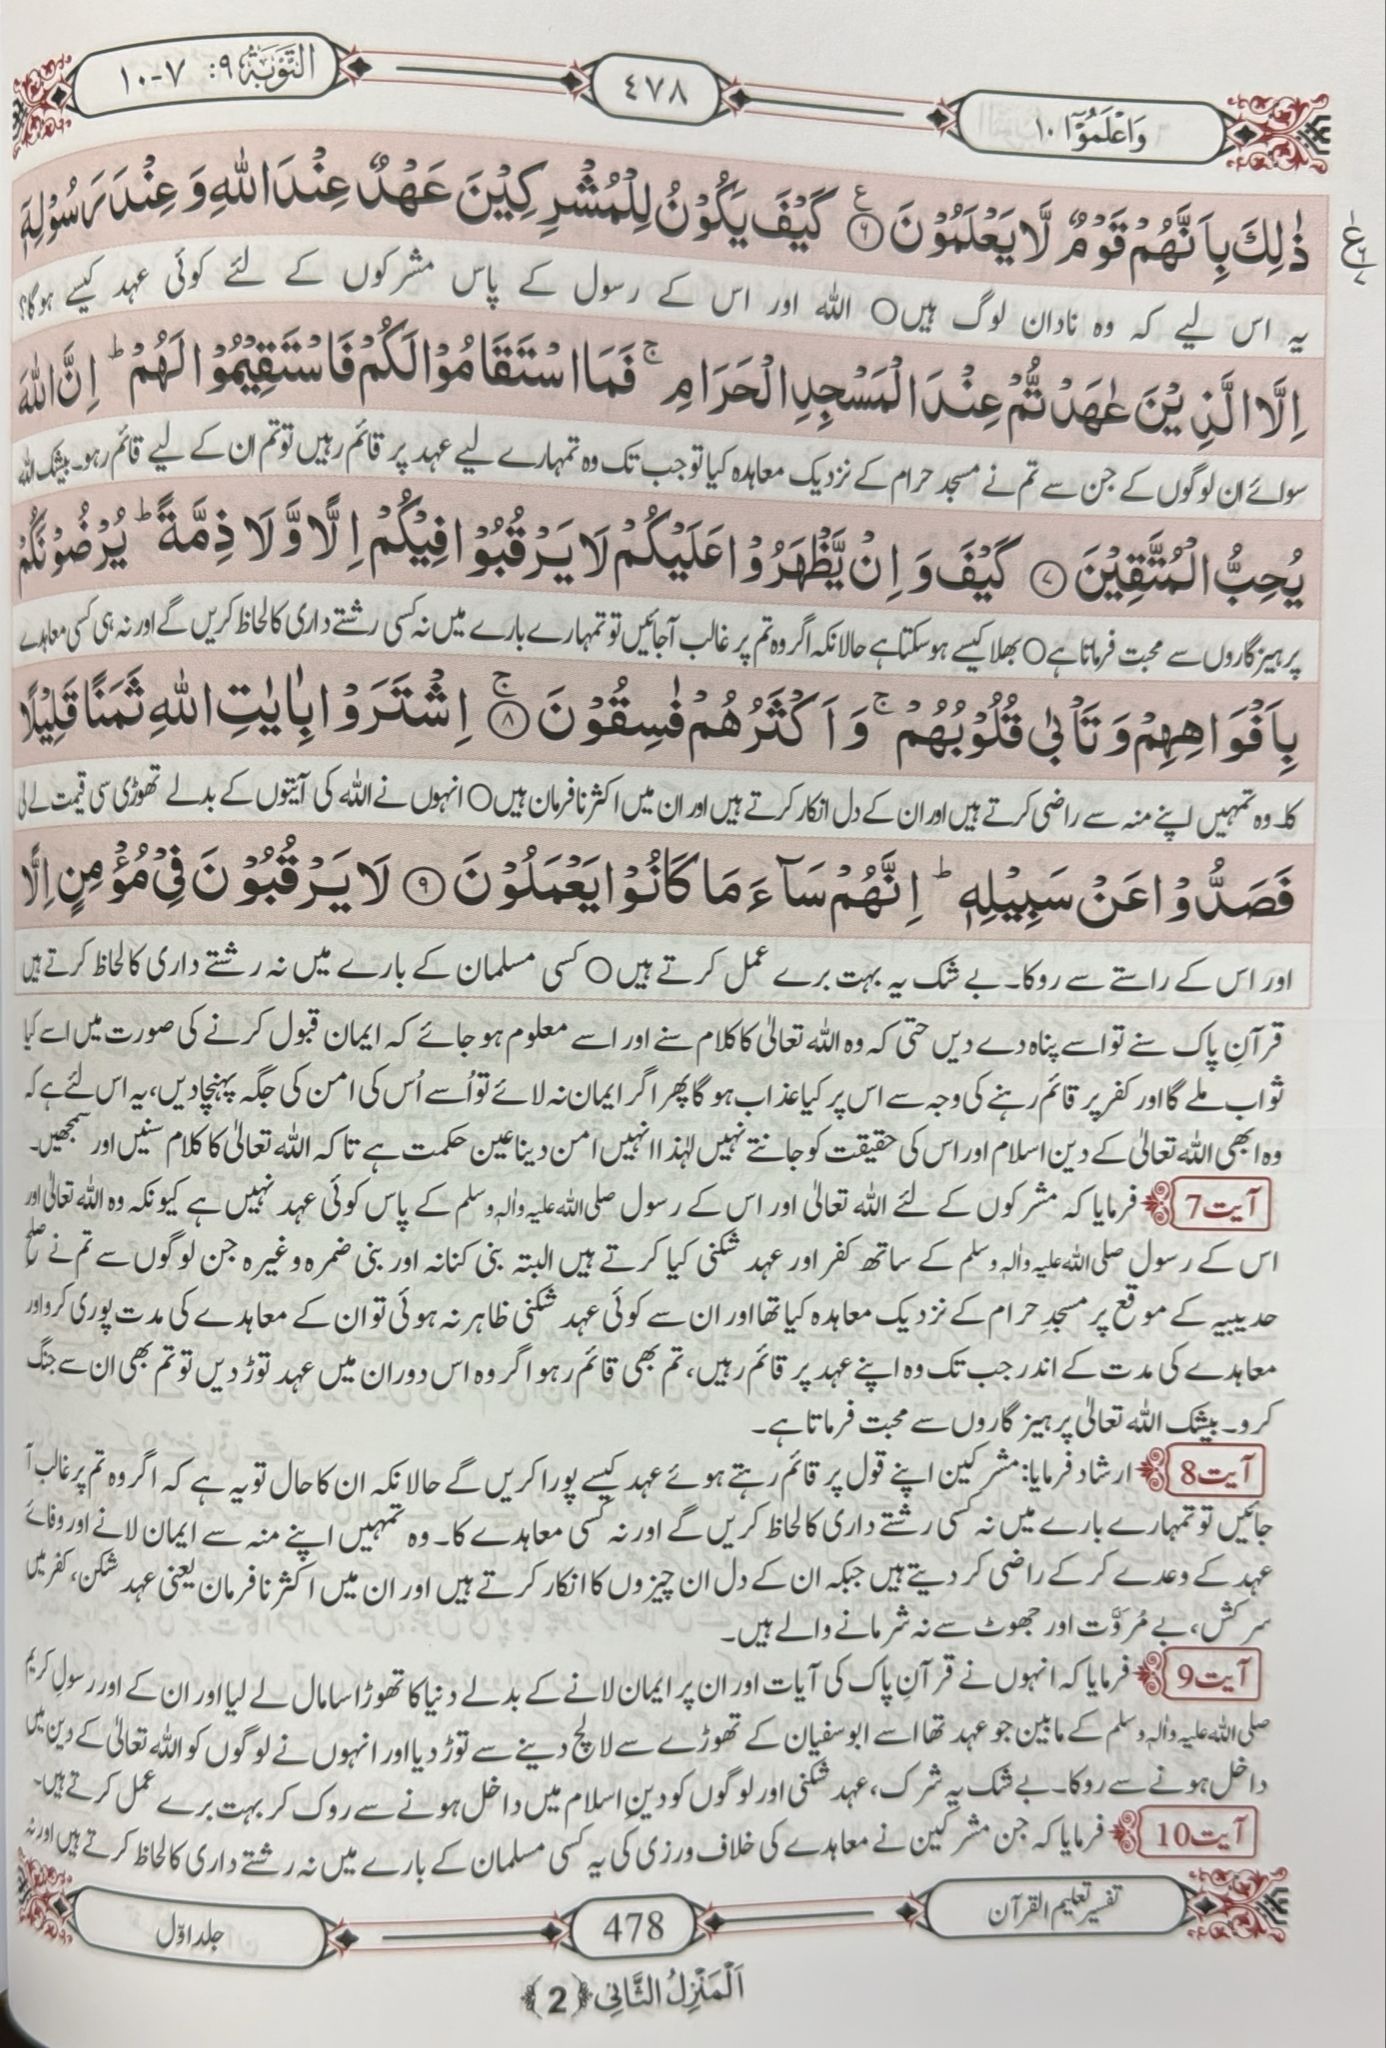 التَّوْبَة ٩: ٧-١٠
٤٧٨
وَاعْلَمُوْٓا ١٠
ذٰلِكَ بِاَنَّهُمْ قَوْمٌ لَّا يَعْلَمُوْنَ ۝٦ ع كَيْفَ يَكُوْنُ لِلْمُشْرِكِيْنَ عَهْدٌ عِنْدَ اللّٰهِ وَ عِنْدَ رَسُوْلِهٖۤ
یہ اس لیے کہ وہ نادان لوگ ہیں○ اللہ اور اس کے رسول کے پاس مشرکوں کے لئے کوئی عہد کیسے ہوگا؟
اِلَّا الَّذِيْنَ عٰهَدْتُّمْ عِنْدَ الْمَسْجِدِ الْحَرَامِ ۚ فَمَا اسْتَقَامُوْا لَكُمْ فَاسْتَقِيْمُوْا لَهُمْ ؕ اِنَّ اللّٰهَ
سوائے ان لوگوں کے جن سے تم نے مسجد حرام کے نزدیک معاہدہ کیا تو جب تک وہ تمہارے لیے عہد پر قائم رہیں تو تم ان کے لیے قائم رہو۔ بیشک اللہ
يُحِبُّ الْمُتَّقِيْنَ ۝٧ كَيْفَ وَ اِنْ يَّظْهَرُوْا عَلَيْكُمْ لَا يَرْقُبُوْا فِيْكُمْ اِلًّا وَّ لَا ذِمَّةً ؕ يُرْضُوْنَكُمْ
پرہیزگاروں سے محبت فرماتا ہے○ بھلا کیسے ہوسکتا ہے حالانکہ اگر وہ تم پر غالب آجائیں تو تمہارے بارے میں نہ کسی رشتے داری کا لحاظ کریں گے اور نہ ہی کسی معاہدے
بِاَفْوَاهِهِمْ وَ تَاْبٰى قُلُوْبُهُمْ ۚ وَ اَكْثَرُهُمْ فٰسِقُوْنَ ۝٨ ۚ اِشْتَرَوْا بِاٰيٰتِ اللّٰهِ ثَمَنًا قَلِيْلًا
کا۔ وہ تمہیں اپنے منہ سے راضی کرتے ہیں اور ان کے دل انکار کرتے ہیں اور ان میں اکثر نافرمان ہیں○ انہوں نے اللہ کی آیتوں کے بدلے تھوڑی سی قیمت لے لی
فَصَدُّوْا عَنْ سَبِيْلِهٖ ؕ اِنَّهُمْ سَآءَ مَا كَانُوْا يَعْمَلُوْنَ ۝٩ لَا يَرْقُبُوْنَ فِيْ مُؤْمِنٍ اِلًّا
اور اس کے راستے سے روکا۔ بے شک یہ بہت برے عمل کرتے ہیں○ کسی مسلمان کے بارے میں نہ رشتے داری کا لحاظ کرتے ہیں
قرآنِ پاک سنے تو اسے پناہ دے دیں حتی کہ وہ اللہ تعالیٰ کا کلام سنے اور اسے معلوم ہو جائے کہ ایمان قبول کرنے کی صورت میں اسے کیا
ثواب ملے گا اور کفر پر قائم رہنے کی وجہ سے اس پر کیا عذاب ہوگا پھر اگر ایمان نہ لائے تو اُسے اُس کی امن کی جگہ پہنچا دیں، یہ اس لئے ہے کہ
وہ ابھی اللہ تعالیٰ کے دین اسلام اور اس کی حقیقت کو جانتے نہیں لہٰذا انہیں امن دینا عین حکمت ہے تاکہ اللہ تعالیٰ کا کلام سنیں اور سمجھیں۔
آیت7 فرمایا کہ مشرکوں کے لئے اللہ تعالیٰ اور اس کے رسول صلی اللہ علیہ واٰلہٖ وسلم کے پاس کوئی عہد نہیں ہے کیونکہ وہ اللہ تعالیٰ اور
اس کے رسول صلی اللہ علیہ واٰلہٖ وسلم کے ساتھ کفر اور عہد شکنی کیا کرتے ہیں البتہ بنی کنانہ اور بنی ضمرہ وغیرہ جن لوگوں سے تم نے صلح
حدیبیہ کے موقع پر مسجدِ حرام کے نزدیک معاہدہ کیا تھا اور ان سے کوئی عہد شکنی ظاہر نہ ہوئی تو ان کے معاہدے کی مدت پوری کرو اور
معاہدے کی مدت کے اندر جب تک وہ اپنے عہد پر قائم رہیں، تم بھی قائم رہو اگر وہ اس دوران میں عہد توڑ دیں تو تم بھی ان سے جنگ
کرو۔ بیشک اللہ تعالیٰ پرہیزگاروں سے محبت فرماتا ہے۔
آیت8 ارشاد فرمایا: مشرکین اپنے قول پر قائم رہتے ہوئے عہد کیسے پورا کریں گے حالانکہ ان کا حال تو یہ ہے کہ اگر وہ تم پر غالب آ
جائیں تو تمہارے بارے میں نہ کسی رشتے داری کا لحاظ کریں گے اور نہ کسی معاہدے کا۔ وہ تمہیں اپنے منہ سے ایمان لانے اور وفائے
عہد کے وعدے کر کے راضی کر دیتے ہیں جبکہ ان کے دل ان چیزوں کا انکار کرتے ہیں اور ان میں اکثر نافرمان یعنی عہد شکن، کفر میں
سرکش، بے مُرَوَّت اور جھوٹ سے نہ شرمانے والے ہیں۔
آیت9 فرمایا کہ انہوں نے قرآنِ پاک کی آیات اور ان پر ایمان لانے کے بدلے دنیا کا تھوڑا سا مال لے لیا اور ان کے اور رسولِ کریم
صلی اللہ علیہ واٰلہٖ وسلم کے مابین جو عہد تھا اسے ابوسفیان کے تھوڑے سے لالچ دینے سے توڑ دیا اور انہوں نے لوگوں کو اللہ تعالیٰ کے دین میں
داخل ہونے سے روکا۔ بے شک یہ شرک، عہد شکنی اور لوگوں کو دینِ اسلام میں داخل ہونے سے روک کر بہت برے عمل کرتے ہیں۔
آیت10 فرمایا کہ جن مشرکین نے معاہدے کی خلاف ورزی کی یہ کسی مسلمان کے بارے میں نہ رشتے داری کا لحاظ کرتے ہیں اور نہ
تفسیر تعلیم القرآن
478
جلد اوّل
اَلْمَنْزِلُ الثَّانِي ﴿2﴾